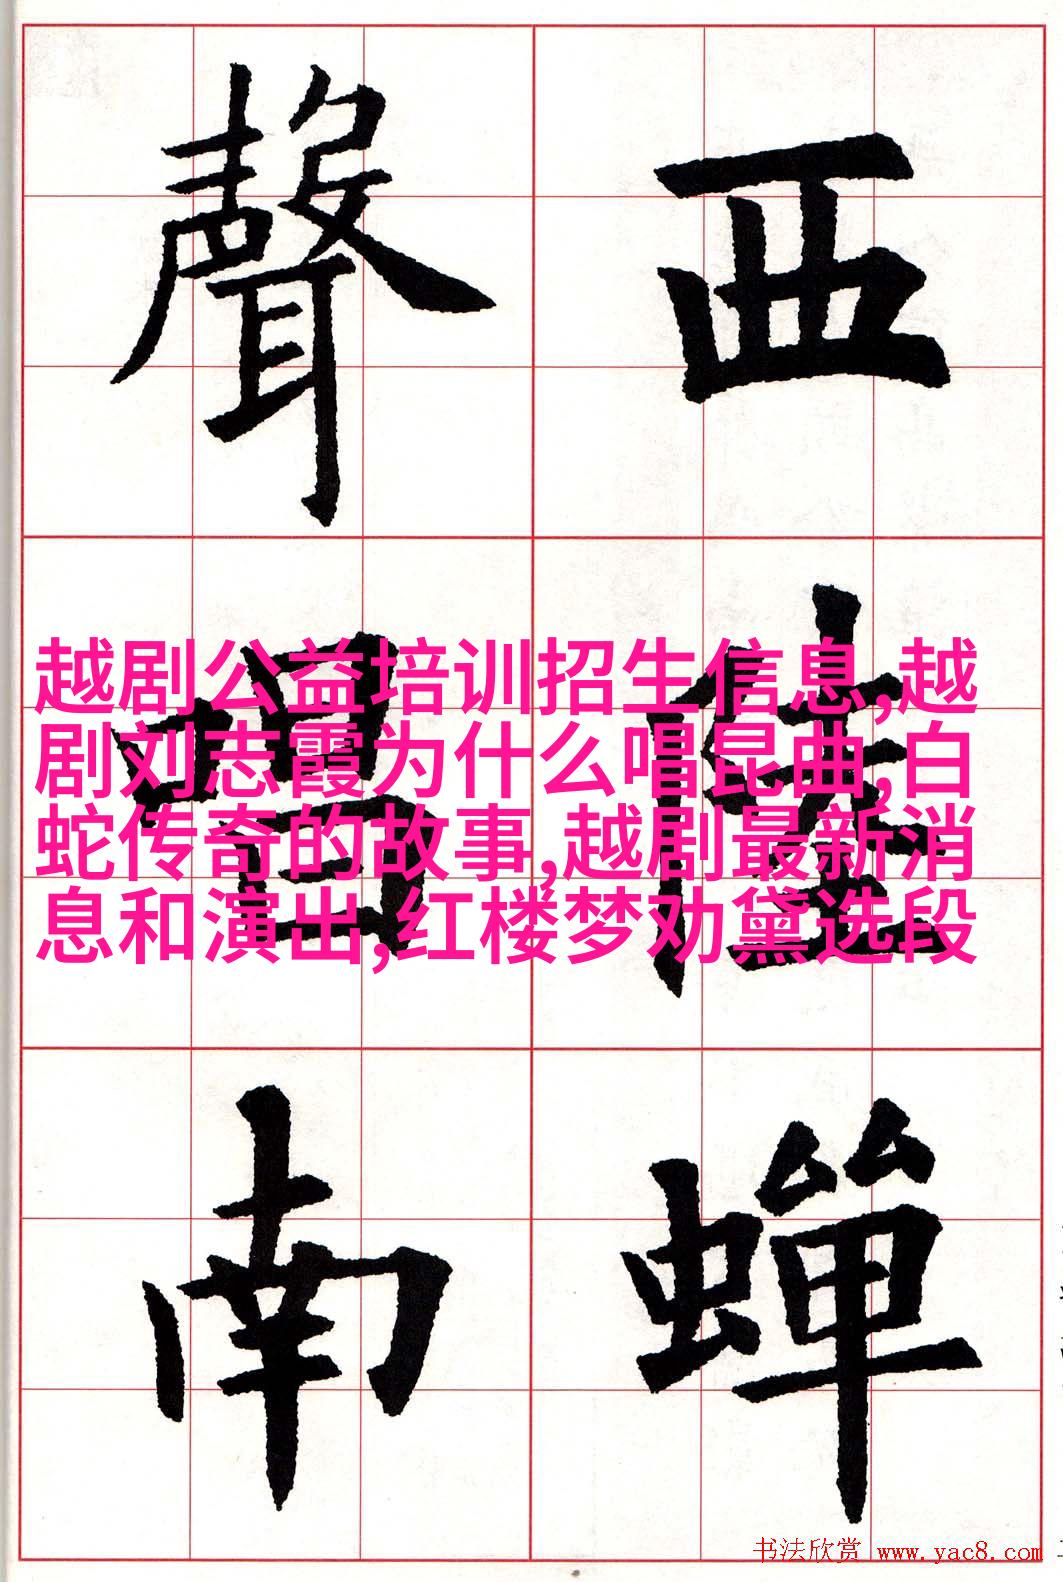 西
陸
蟬
聲
唱
南
越剧公益培训招生信息,越
剧刘志霞为什么唱昆曲,白
蛇传奇的故事,越剧最新消
息和演出,红楼梦劝黛选段
书法欣赏 www.yac8.com